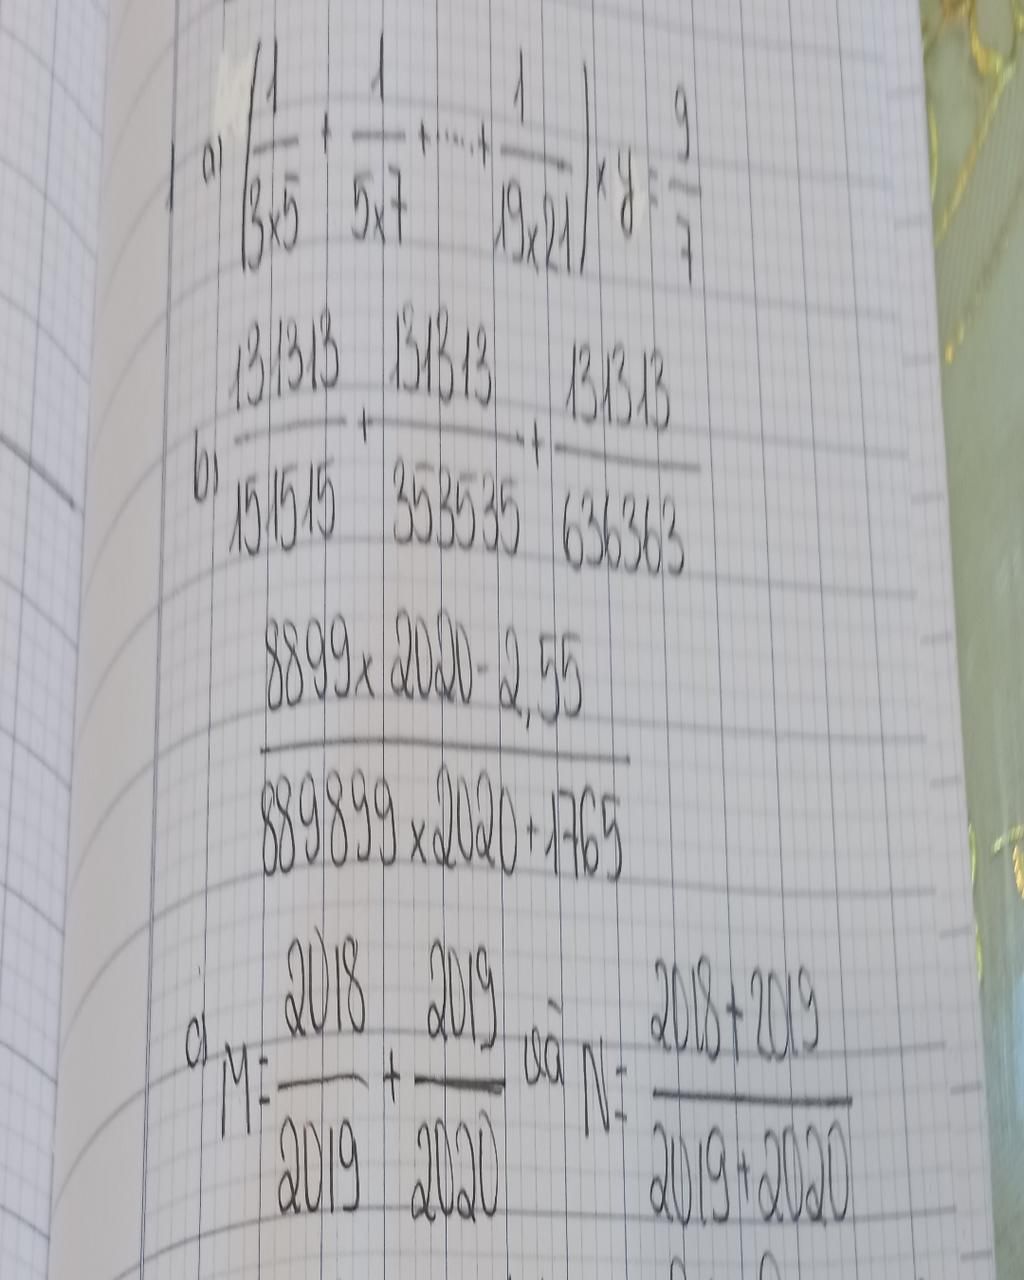 a) (1/3x5 + 1/5x7 + ..... + 1/19x21) x y = 9/7
b) 131313/151515 + 131313/353535 + 131313/636363
8899 x 2020 - 2,55
889899 x 2020 + 1765
c) M = 2018/2019 + 2019/2020 và N = 2018 + 2019/2019 + 2020